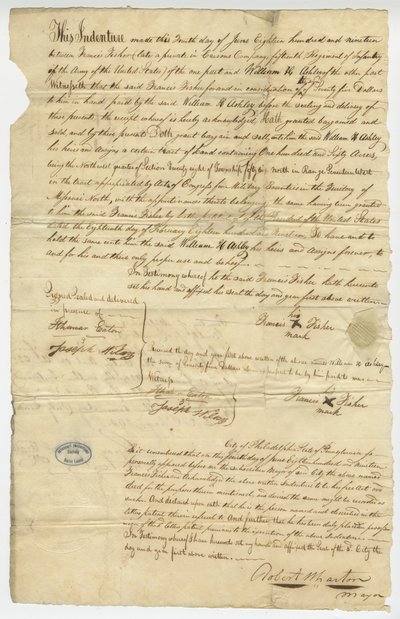 This Indenture made this Fourth day of June Eighteen hundred and nineteen
between Francis Fisher (late a private in Carsons Company, fifteenth Regiment of Infantry
of the Army of the United States) of the one part and William H Ashley of the other part
Witnesseth that the said Francis Fisher for and in consideration of Twenty five Dollars
to him in hand paid by the said William H Ashley before the sealing and delivery of
these present the receipt whereof is hereby acknowledged Hath granted bargained and
sold, and by these present Doth grant bargain and sell unto him the said William H Ashley
his heirs and assigns a certain tract of Land containing One hundred and Sixty Acres,
being the Northwest quarter of Section Twenty eight of Township fifty six North in Range West
in the tract appropriated by acts of Congress for Military Bounties in the Territory of
Missouri North, with the appurtenances thereto belonging, the same having been granted
to him the said Francis Fisher by of the United States
dated the eighteenth day of February Eighteen hundred and Nineteen To have and to
hold the same unto him the said William H Ashley his heirs and assigns forever, to
and for his and their only proper use and
In Testimony whereof he the said Francis Fisher hath hereunto
set his hand and affixed his seal the day and year first above written
Signed Sealed and delivered
in presence of
Eaton
Joseph
his
Francis X Fisher
mark
Received the day and year first above written of the above named William H Ashley
the sum of Twenty five Dollars to be by him paid
Witness
Eaton
Joseph
Francis X Fisher
mark
City of Philadelphia State of Pennsylvania
Be it remembered that on the fourth day of June Eighteen hundred and Nineteen
personally appeared before me the subscriber Mayor of said City the above named
Francis Fisher and acknowledged the above written Indenture to be his act and
deed for the purposes therein mentioned and desired the same might be recorded as
such And declared upon oath that he is the person named and described in the
letters patent therein referred to And further that he has been duly placed in posses-
sion of the letters patent previous to the execution of the above Indenture
In Testimony whereof I have hereunto set my hand and affixed the Seal of the City the
day and year first above written
Robert Wharton
Mayor